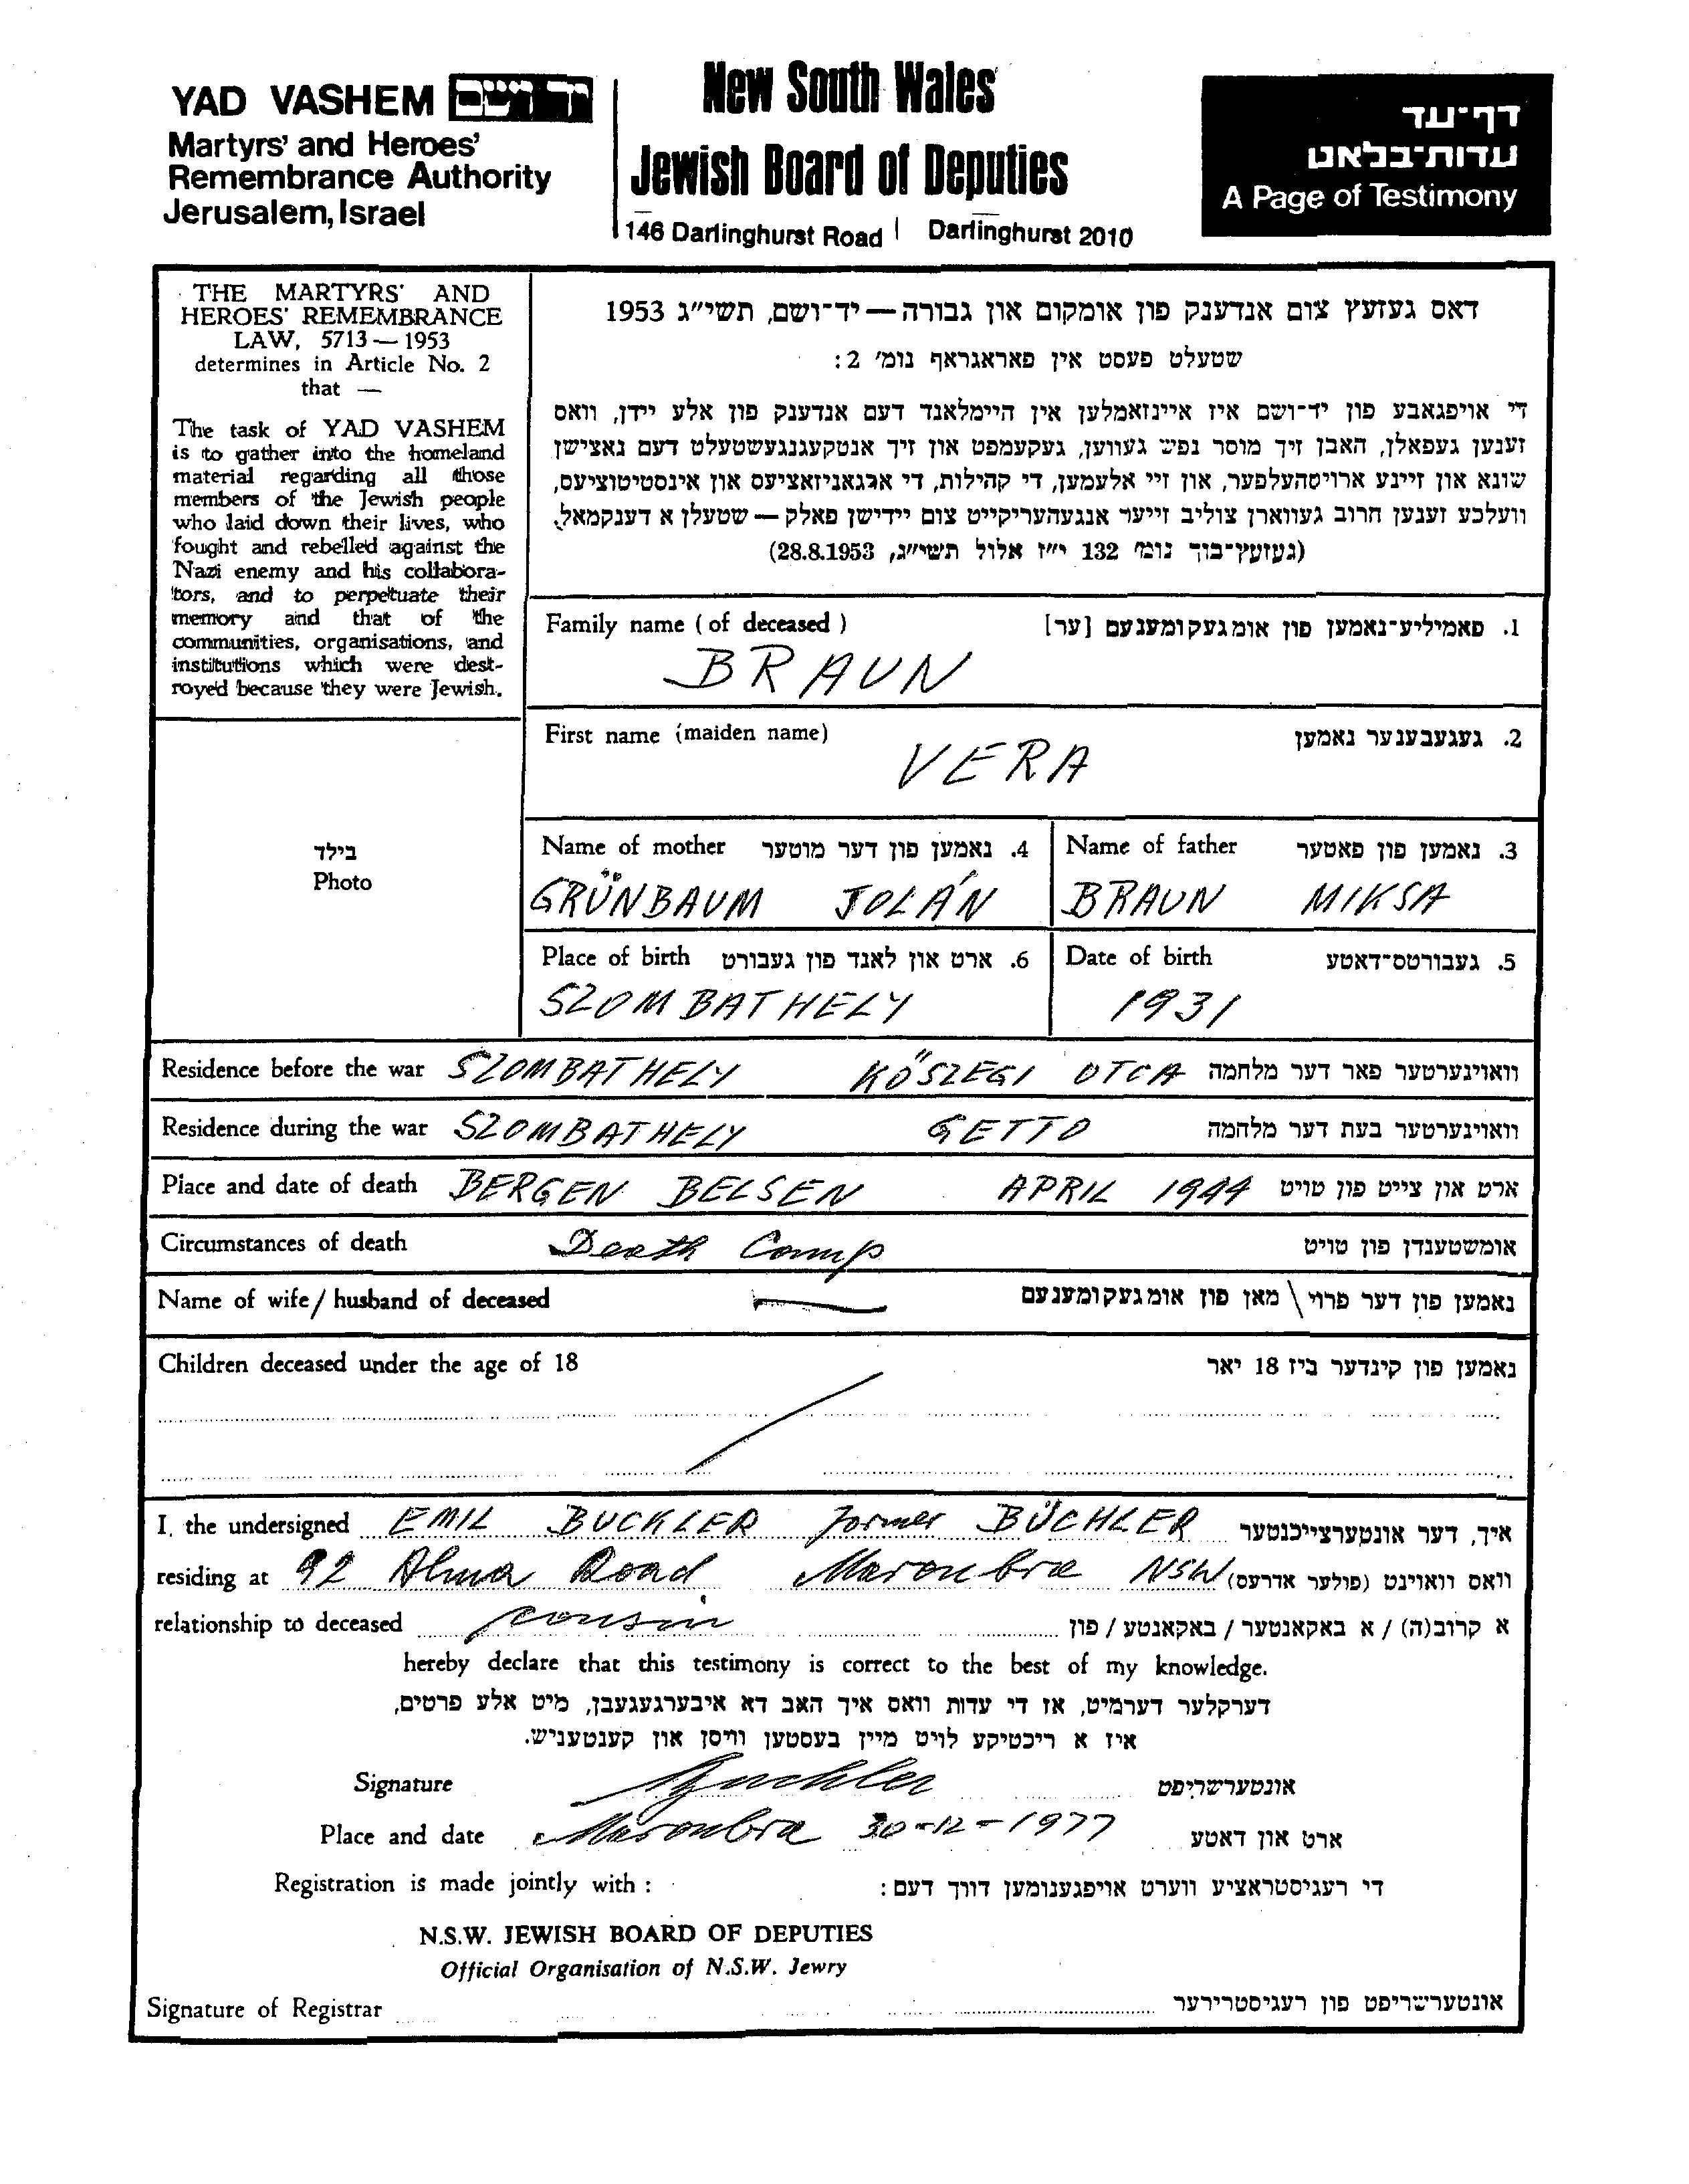 YAD VASHEM יד ושם
Martyrs' and Heroes'
Remembrance Authority
Jerusalem, Israel
New South Wales
Jewish Board of Deputies
146 Darlinghurst Road | Darlinghurst 2010
דף־עד
עדות־בלאט
A Page of Testimony
THE MARTYRS' AND
HEROES' REMEMBRANCE
LAW, 5713 — 1953
determines in Article No. 2
that —
The task of YAD VASHEM
is to gather into the homeland
material regarding all those
members of the Jewish people
who laid down their lives, who
fought and rebelled against the
Nazi enemy and his collabora-
tors, and to perpetuate their
memory and that of the
communities, organisations, and
institutions which were dest-
royed because they were Jewish.
דאס געזעץ צום אנדענק פון אומקום און גבורה — יד־ושם, תשי"ג 1953
שטעלט פעסט אין פאראגראף נומ' 2:
די אויפגאבע פון יד־ושם איז איינזאמלען אין היימלאנד דעם אנדענק פון אלע יידן, וואס
זענען געפאלן, האבן זיך מוסר נפש געווען, געקעמפט און זיך אנטקעגנגעשטעלט דעם נאצישן
שונא און זיינע ארויסהעלפער, און זיי אלעמען, די קהילות, די ארגאניזאציעס און אינסטיטוציעס,
וועלכע זענען חרוב געווארן צוליב זייער אנגעהעריקייט צום יידישן פאלק — שטעלן א דענקמאל.
(געזעץ־בוך נומ' 132 י"ז אלול תשי"ג, 28.8.1953)
Family name (of deceased) 1. פאמיליע־נאמען פון אומגעקומענעם [ער]
BRAUN
First name (maiden name) 2. געגעבענער נאמען
VERA
בילד
Photo
Name of mother 4. נאמען פון דער מוטער
GRÜNBAUM JOLÁN
Name of father 3. נאמען פון פאטער
BRAUN MIKSA
Place of birth 6. ארט און לאנד פון געבורט
SZOMBATHELY
Date of birth 5. געבורטס־דאטע
1931
Residence before the war SZOMBATHELY KŐSZEGI UTCA וואוינערטער פאר דער מלחמה
Residence during the war SZOMBATHELY GETTO וואוינערטער בעת דער מלחמה
Place and date of death BERGEN BELSEN APRIL 1944 ארט און צייט פון טויט
Circumstances of death Death Camp אומשטענדן פון טויט
Name of wife / husband of deceased נאמען פון דער פרוי \ מאן פון אומגעקומענעם
Children deceased under the age of 18 נאמען פון קינדער ביז 18 יאר
I, the undersigned EMIL BUCKLER former BÜCHLER איך, דער אונטערצייכנטער
residing at 92 Alma Road Maroubra NSW וואס וואוינט (פולער אדרעס)
relationship to deceased cousin א קרוב(ה) / א באקאנטער / באקאנטע / פון
hereby declare that this testimony is correct to the best of my knowledge.
דערקלער דערמיט, אז די עדות וואס איך האב דא איבערגעגעבן, מיט אלע פרטים,
איז א ריכטיקע לויט מיין בעסטען וויסן און קענטעניש.
Signature Buckler אונטערשריפט
Place and date Maroubra 30-12-1977 ארט און דאטע
Registration is made jointly with: די רעגיסטראציע ווערט אויפגענומען דורך דעם:
N.S.W. JEWISH BOARD OF DEPUTIES
Official Organisation of N.S.W. Jewry
Signature of Registrar אונטערשריפט פון רעגיסטרירער